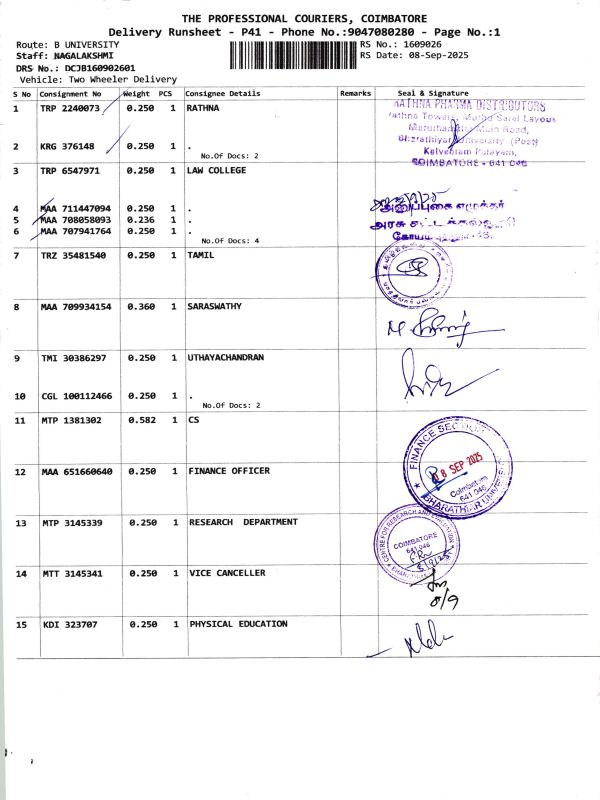 THE PROFESSIONAL COURIERS, COIMBATORE
Delivery Runsheet - P41 - Phone No.:9047080280 - Page No.:1
Route: B UNIVERSITY
RS No.: 1609026
Staff: NAGALAKSHMI
RS Date: 08-Sep-2025
DRS No.: DCJB160902601
Vehicle: Two Wheeler Delivery
S No Consignment No Weight PCS Consignee Details Remarks Seal & Signature
1 TRP 2240073 0.250 1 RATHNA
RATHNA PHARMA DISTRIBUTORS
Main Road,
Bharathiyar University (Post)
COIMBATORE - 641 046
2 KRG 376148 0.250 1 .
No.Of Docs: 2
3 TRP 6547971 0.250 1 LAW COLLEGE
4 MAA 711447094 0.250 1 .
5 MAA 708058093 0.236 1 .
6 MAA 707941764 0.250 1 .
No.Of Docs: 4
7 TRZ 35481540 0.250 1 TAMIL
8 MAA 709934154 0.360 1 SARASWATHY
9 TMI 30386297 0.250 1 UTHAYACHANDRAN
10 CGL 100112466 0.250 1 .
No.Of Docs: 2
11 MTP 1381302 0.582 1 CS
FINANCE SECTION
08 SEP 2025
Coimbatore
641 046
BHARATHIAR UNIVERSITY
12 MAA 651660640 0.250 1 FINANCE OFFICER
13 MTP 3145339 0.250 1 RESEARCH DEPARTMENT
CENTRE FOR RESEARCH AND
COIMBATORE
641 046
8/9/25
14 MTT 3145341 0.250 1 VICE CANCELLER
8/9
15 KDI 323707 0.250 1 PHYSICAL EDUCATION